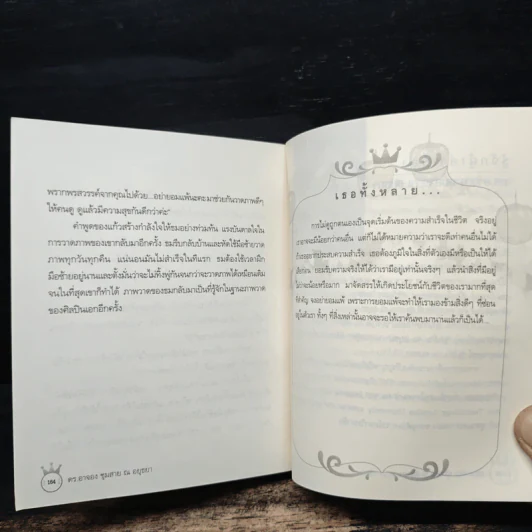 พรากพรสวรรค์จากคุณไปด้วย...อย่ายอมแพ้นะคะมาช่วยกันวาดภาพดีๆ
ให้คนดู ดูแล้วมีความสุขกันดีกว่าค่ะ"
คำพูดของแก้วสร้างกำลังใจให้ชมอย่างท่วมท้น แรงบันดาลใจใน
การวาดภาพของเขากลับมาอีกครั้ง ชมรีบกลับบ้านและหัดใช้มือซ้ายวาด
ภาพทุกวันทุกคืน แน่นอนมันไม่สำเร็จในทีแรก ชมต้องใช้เวลาฝึก
มือซ้ายอยู่นานและตั้งมั่นว่าจะไม่ทิ้งพู่กันจนกว่าจะวาดภาพได้เหมือนเดิม
จนในที่สุดเขาก็ทำได้ ภาพวาดของชมกลับมาเป็นที่รู้จักในฐานะภาพวาด
ของศิลปินเอกอีกครั้ง
184 ดร.อาจอง ชุมสาย ณ อยุธยา
เธอทั้งหลาย...
การไม่ดูถูกตนเองเป็นจุดเริ่มต้นของความสำเร็จในชีวิต จริงอยู่
เราอาจจะมีน้อยกว่าคนอื่น แต่ก็ไม่ได้หมายความว่าเราจะดีเท่าคนอื่นไม่ได้
ถ้าเธออยากประสบความสำเร็จ เธอต้องภูมิใจในสิ่งที่ตัวเองมีหรือเป็นให้ได้
เสียก่อน ยอมรับความจริงให้ได้ว่าเรามีอยู่เท่านั้นจริงๆ แล้วนำสิ่งที่มีอยู่
ไม่ว่าจะน้อยหรือมาก มาจัดสรรให้เกิดประโยชน์กับชีวิตของเรามากที่สุด
ที่สำคัญ จงอย่ายอมแพ้ เพราะการยอมแพ้จะทำให้เรามองข้ามสิ่งดีๆ ที่ซ่อน
อยู่ในตัวเรา ทั้งๆ ที่สิ่งเหล่านั้นอาจจะรอให้เราค้นพบมานานแล้วก็เป็นได้...